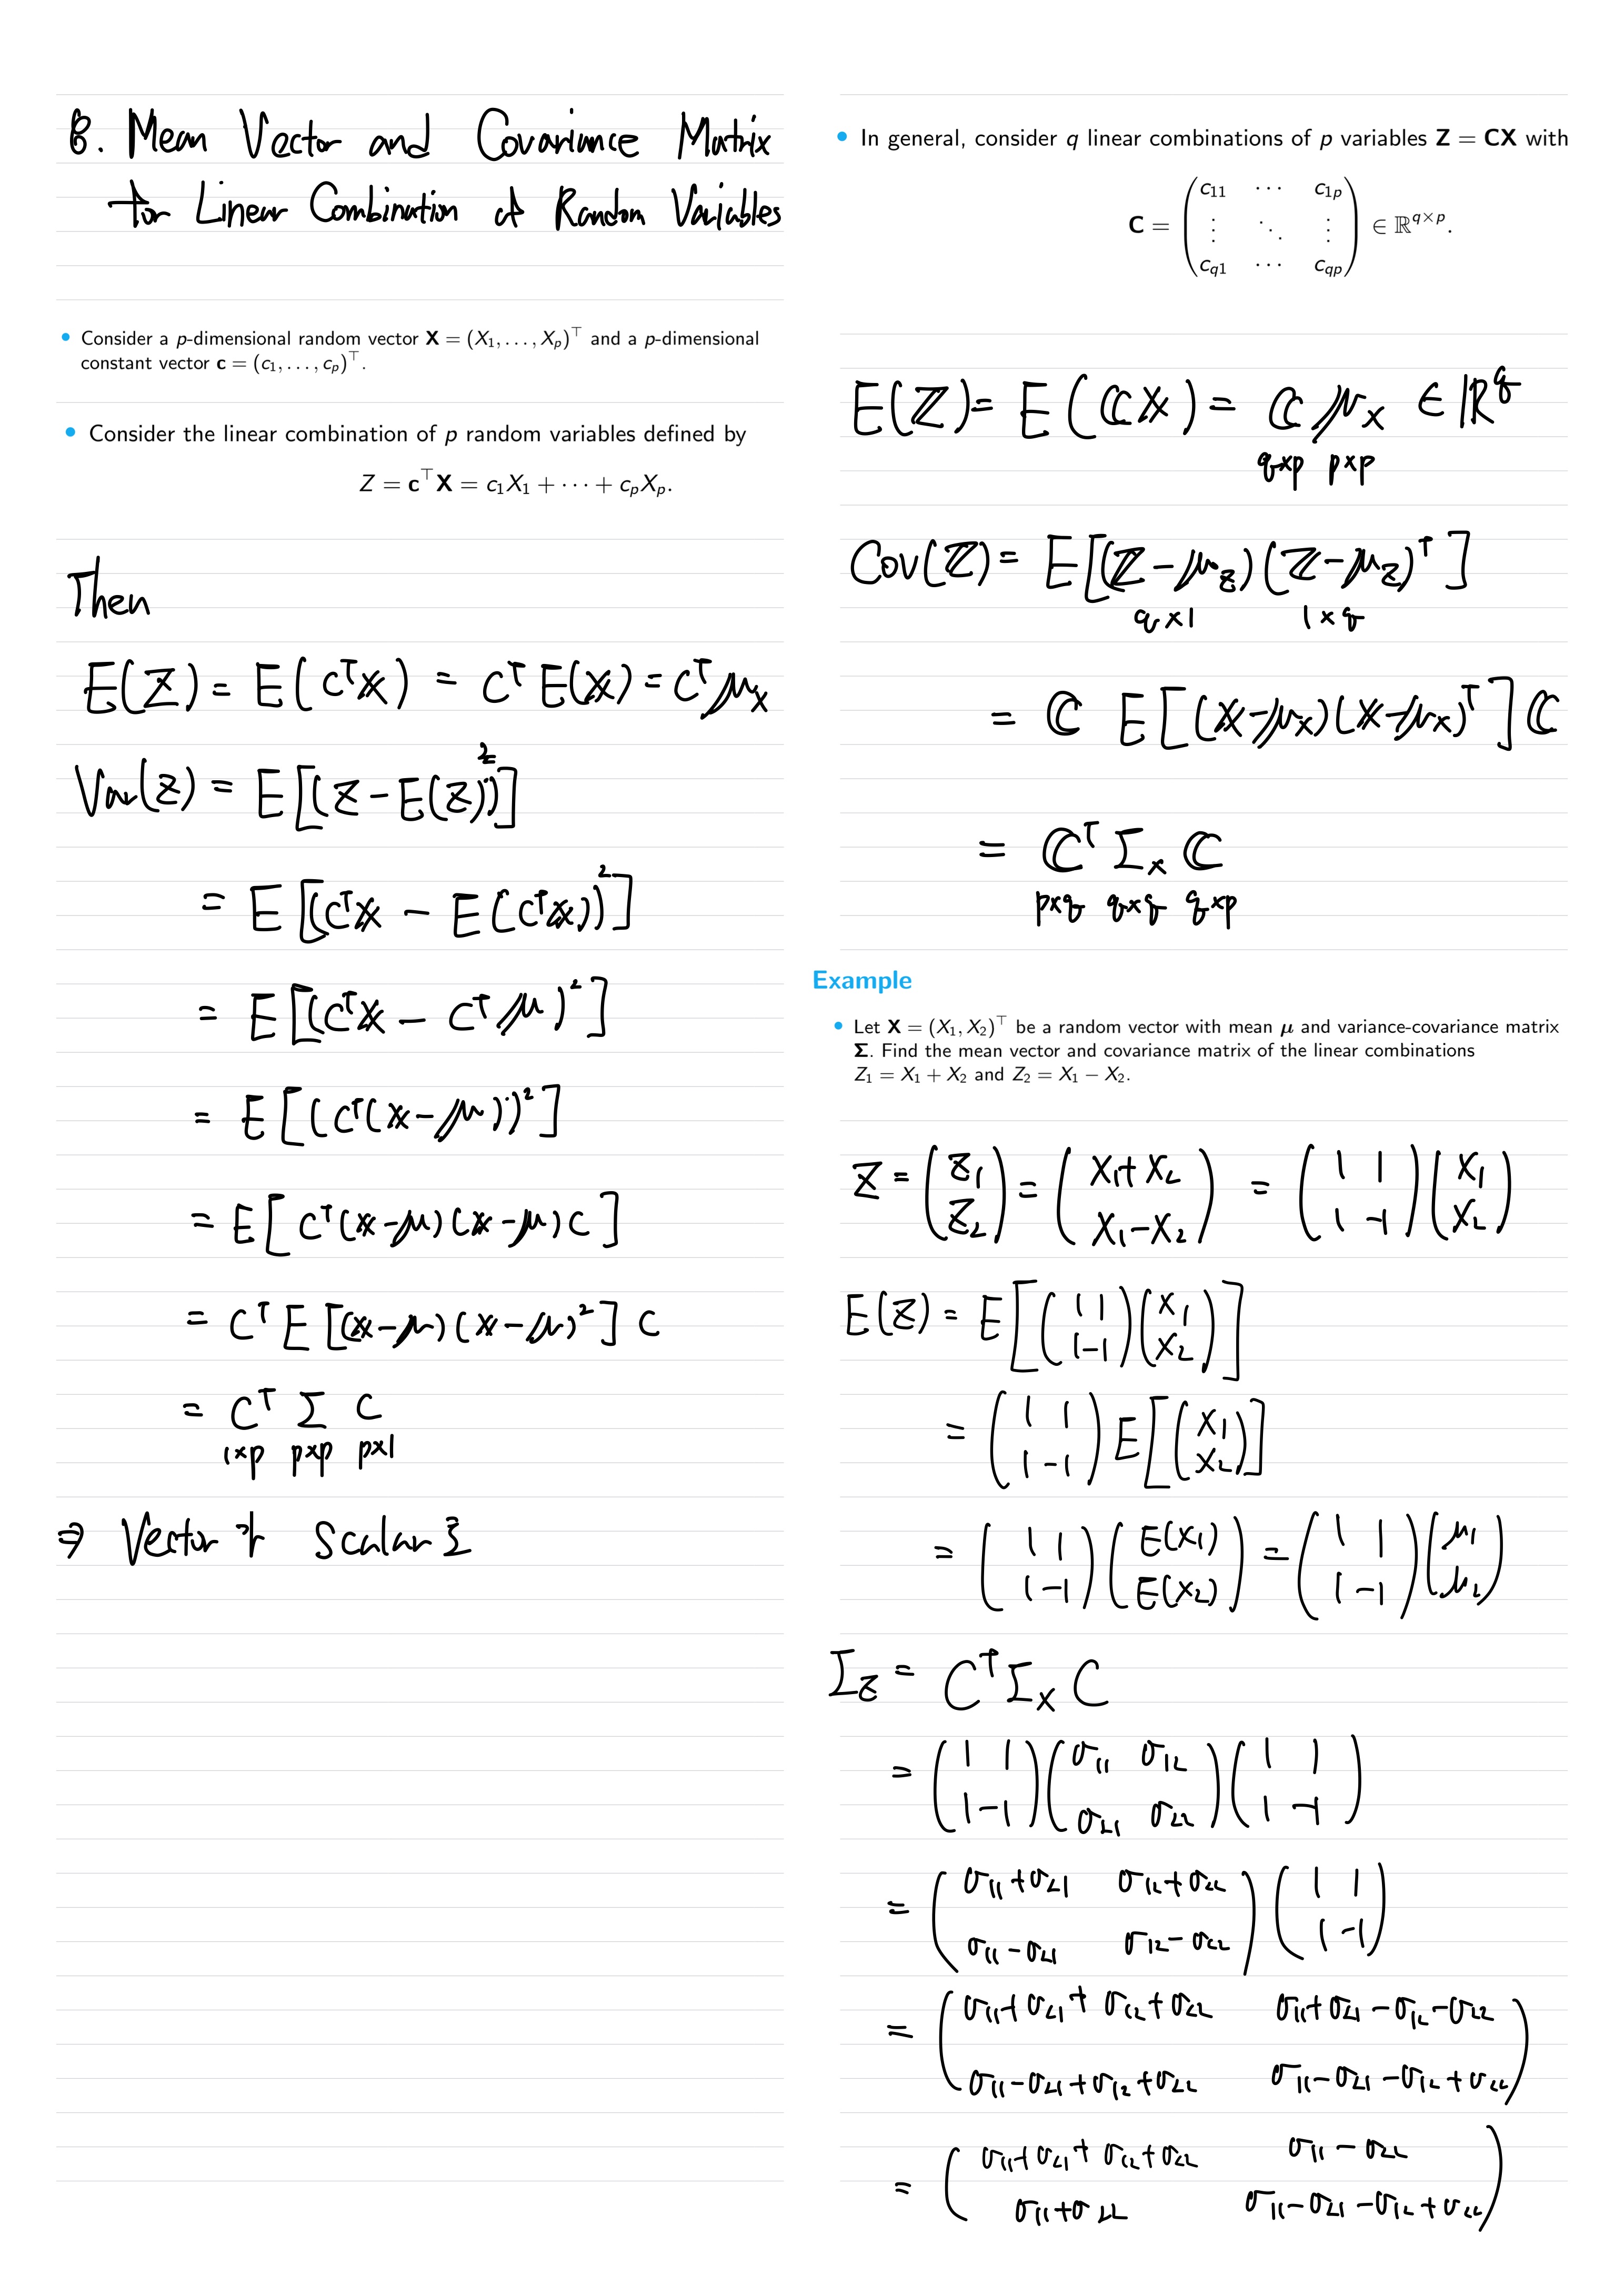 8. Mean Vector and Covariance Matrix
for Linear Combination of Random Variables
• Consider a p-dimensional random vector X = (X₁, . . . , Xₚ)ᵀ and a p-dimensional
constant vector c = (c₁, . . . , cₚ)ᵀ.
• Consider the linear combination of p random variables defined by
Z = cᵀX = c₁X₁ + · · · + cₚXₚ.
Then
E(Z) = E(cᵀX) = cᵀE(X) = cᵀμₓ
Var(Z) = E[(Z − E(Z))²]
= E[(cᵀX − E(cᵀX))²]
= E[(cᵀX − cᵀμ)²]
= E[(cᵀ(X−μ))²]
= E[cᵀ(X−μ)(X−μ)c]
= cᵀ E[(X−μ)(X−μ)²] c
= cᵀ Σ c
1×p p×p p×1
⇒ Vector Scalar
• In general, consider q linear combinations of p variables Z = CX with
C = (c₁₁ · · · c₁ₚ
⋮ ⋱ ⋮
c_q1 · · · c_qp) ∈ ℝ^{q×p}.
E(Z) = E(CX) = C μₓ ∈ ℝ^q
q×p p×p
Cov(Z) = E[(Z−μ_Z)(Z−μ_Z)ᵀ]
q×1 1×q
= C E[(X−μₓ)(X−μₓ)ᵀ] C
= Cᵀ Σₓ C
p×q q×q q×p
Example
• Let X = (X₁, X₂)ᵀ be a random vector with mean μ and variance-covariance matrix
Σ. Find the mean vector and covariance matrix of the linear combinations
Z₁ = X₁ + X₂ and Z₂ = X₁ − X₂.
Z = (Z₁ Z₂) = (X₁+X₂ X₁−X₂) = (1 1 1 −1)(X₁ X₂)
E(Z) = E[(1 1 1 −1)(X₁ X₂)]
= (1 1 1 −1) E[(X₁ X₂)]
= (1 1 1 −1)(E(X₁) E(X₂)) = (1 1 1 −1)(μ₁ μ₂)
Σ_Z = Cᵀ Σ_X C
= (1 1 1 −1)(σ₁₁ σ₁₂ σ₂₁ σ₂₂)(1 1 1 −1)
= (σ₁₁+σ₂₁ σ₁₂+σ₂₂ σ₁₁−σ₂₁ σ₁₂−σ₂₂)(1 1 1 −1)
= (σ₁₁+σ₂₁+σ₁₂+σ₂₂ σ₁₁+σ₂₁−σ₁₂−σ₂₂
σ₁₁−σ₂₁+σ₁₂+σ₂₂ σ₁₁−σ₂₁−σ₁₂+σ₂₂)
= (σ₁₁+σ₂₁+σ₁₂+σ₂₂ σ₁₁−σ₂₂
σ₁₁+σ₂₂ σ₁₁−σ₂₁−σ₁₂+σ₂₂)